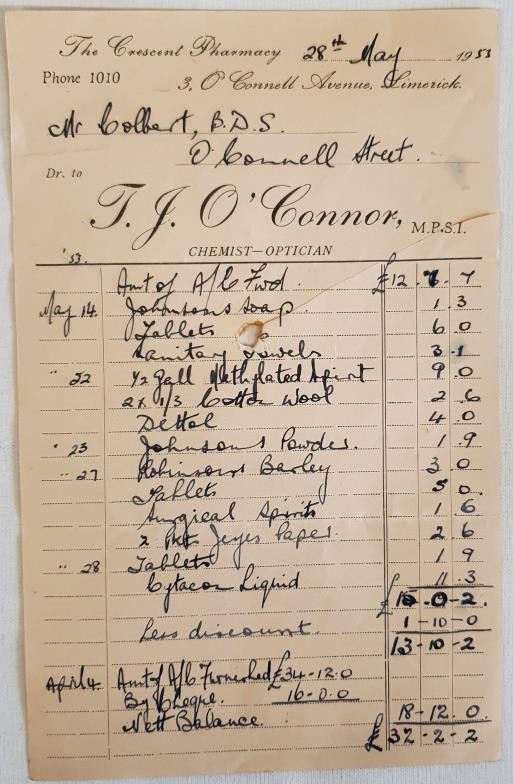 The Crescent Pharmacy 28th May 1953
Phone 1010 3, O'Connell Avenue, Limerick.
Mr Colbert, B.D.S.
O'Connell Street.
Dr. to
T. J. O'Connor, M.P.S.I.
CHEMIST—OPTICIAN
'53.
Amt of A/C Fwd. £12. 7. 7
May 14. Johnsons Soap. 1. 3
Tablets 6 0
Sanitary Towels 3. 1
" 22 1/2 gall Methylated Spirit 9. 0
2 x 1/3 Cotton Wool 2. 6
Dettol 4. 0
" 23 Johnsons Powder. 1. 9
" 27 Robinsons Barley 3 0
Tablets 5 0.
Surgical Spirits 1 6
2 Pkt Jeyes Paper 2. 6
" 28 Tablets 1 9
Cytacon Liquid 11. 3
£15-0-2.
Less discount. 1-10-0
13-10-2
April 4. Amt of A/C Furnished £34-12.0
By Cheque. 16-0.0
Nett Balance 18-12.0.
£32-2-2